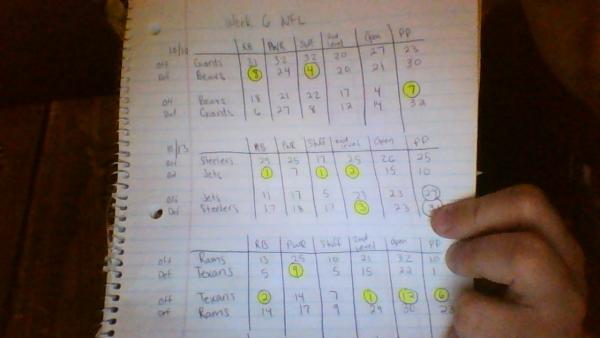 Week 6 NFL
10/10 RB PWR Stuff 2nd Level Open PP
Off Giants 31 32 32 20 27 23
Def Bears 8 24 4 20 21 30
Off Bears 18 21 22 17 4 7
Def Giants 6 27 8 12 14 32
10/13 RB PWR Stuff 2nd Level Open PP
Off Steelers 29 25 17 25 26 25
Def Jets 1 7 1 2 15 10
Off Jets 11 17 5 29 23
Def Steelers 17 18 17 3 23
RB PWR Stuff 2nd Level Open PP
Off Rams 13 25 10 21 32 10
Def Texans 5 9 5 15 22 1
Off Texans 2 14 7 1 12 6
Def Rams 14 17 9 29 30 23